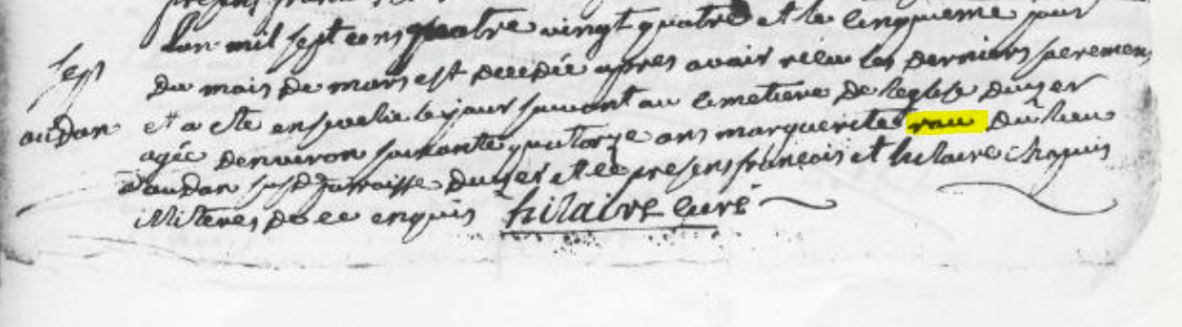 Lan mil sept cens quatre vingt quatre et le cinquieme jour
du mois de mars est decedée apres avoir recu les derniers sacremens
et a ete ensevelie le jour suivant au cimetiere de leglise
agée denviron soixante quatorze ans marguerite du lieu
daudan et ce presens francois et hilaire
illiteres de ce enquis hilaire curé
sept
audan